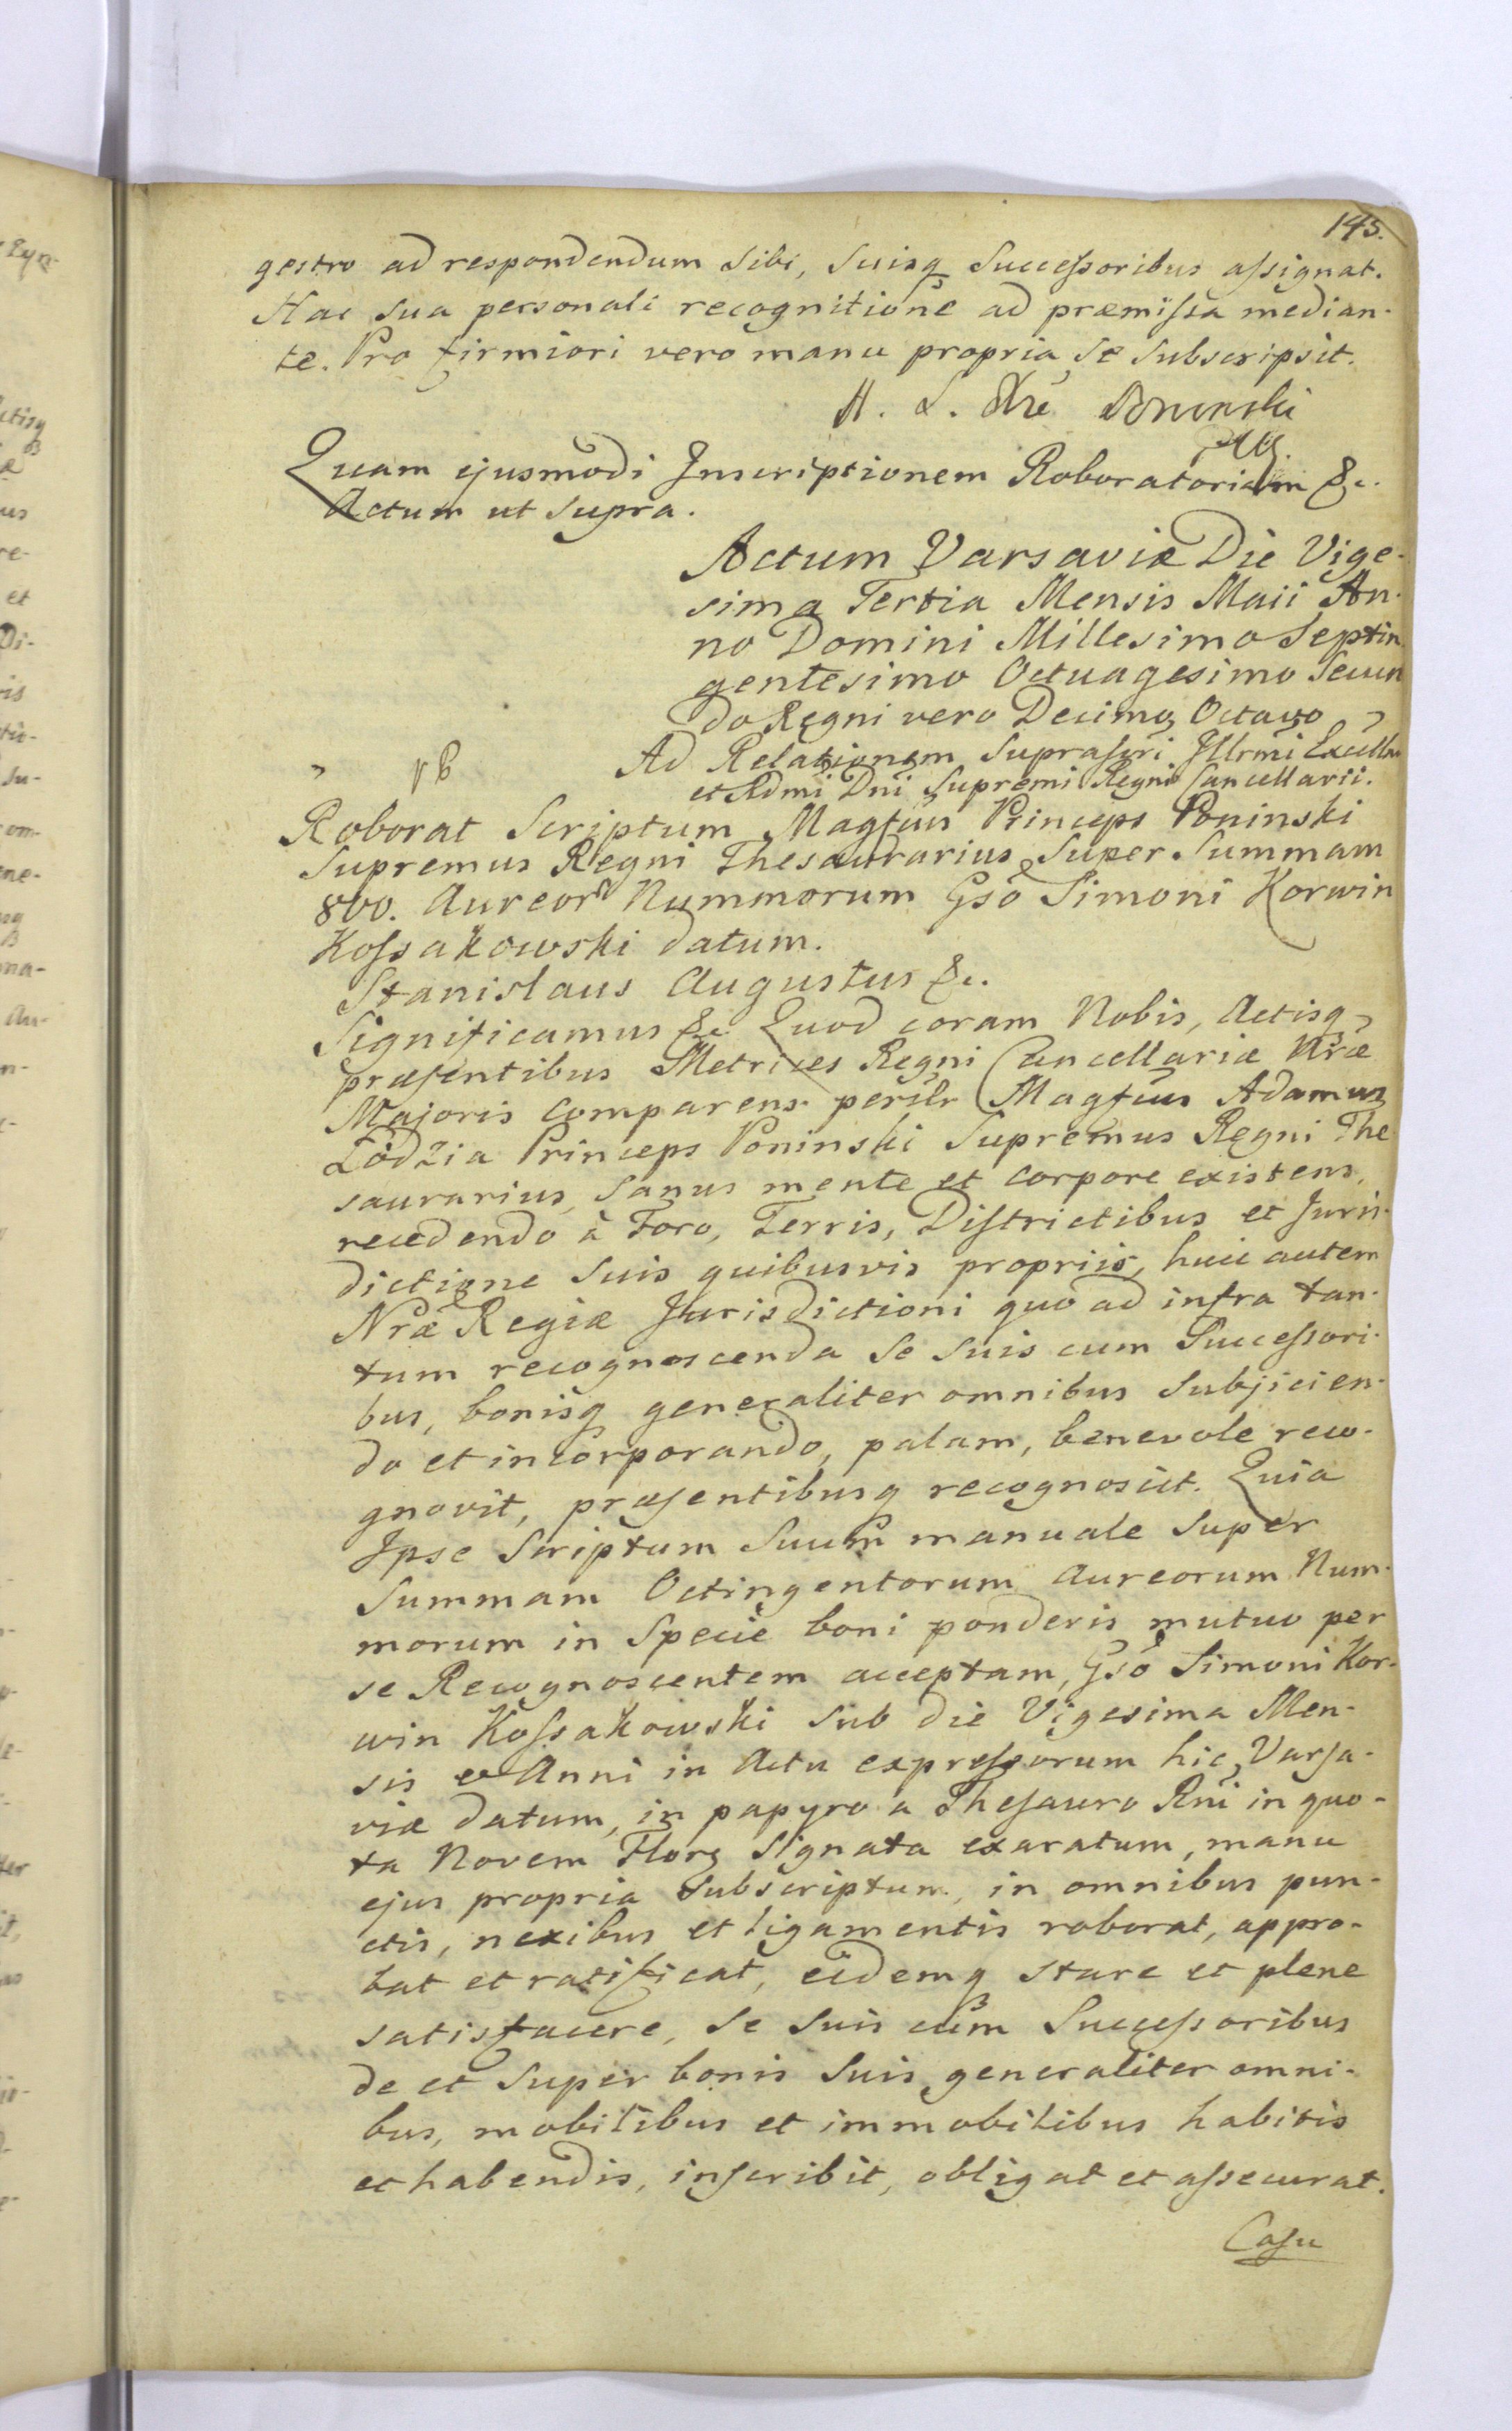 145.
gestro ad respondendum sibi, suisq Successoribus assignat.
Hac sua personali recognitione ad præmissa median-
te. Pro firmiori vero manu propria se subscripsit.
A. L.
Quam ejusmodi Inscriptionem Roboratoriam &c.
Actum ut supra.
Actum Varsaviæ Die Vige-
sima Tertia Mensis Maii An-
no Domini Millesimo Septin
gentesimo Octuagesimo Secun
do Regni vero Decimo Octavo
Ad Relationem Suprascri Illrmi Excellmi
et Rdmi Dni Supremi Regni Cancellarii.
Roborat Scriptum Magfcus Princeps Poninski
Supremus Regni Thesaurarius Super Summam
800. Aureor Nummorum Gso Simoni Korwin
Kossakowski datum.
Stanislaus Augustus &c.
Significamus &c. Quod coram Nobis, Actisq
præsentibus Metrices Regni Cancellariæ Nræ
Majoris comparens persnlr Magfcus Adamus
Łodzia Princeps Poninski Supremus Regni The
saurarius, sanus mente et corpore existens,
recedendo à Foro, Terris, Districtibus et Juris-
dictione suis quibusvis propriis, huic autem
Nræ Regiæ Jurisdictioni quo ad infra tan-
tum recognoscenda se suis cum Successori-
bus, bonisq generaliter omnibus subjicien-
do et incorporando, palam, benevole reco-
gnovit, præsentibusq recognoscit. Quia
Ipse Scriptum suum manuale super
Summam Octingentorum Aureorum Num-
morum in Specie boni ponderis mutuo per
se Recognoscentem acceptam, Gso Simoni Kor-
win Kossakowski sub die Vigesima Men-
sis et Anni in Actu expressorum hic Varsa-
viæ datum, in papyro a Thesauro Rni in quo-
ta Novem Flor signata exaratum, manu
ejus propria subscriptum, in omnibus pun-
ctis, nexibus et ligamentis roborat, appro-
bat et ratificat, eidemq stare et plene
satisfacere, se suis cum Successoribus
de et super bonis suis generaliter omni-
bus, mobilibus et immobilibus habitis
et habendis, inscribit, obligat et assecurat.
Casu